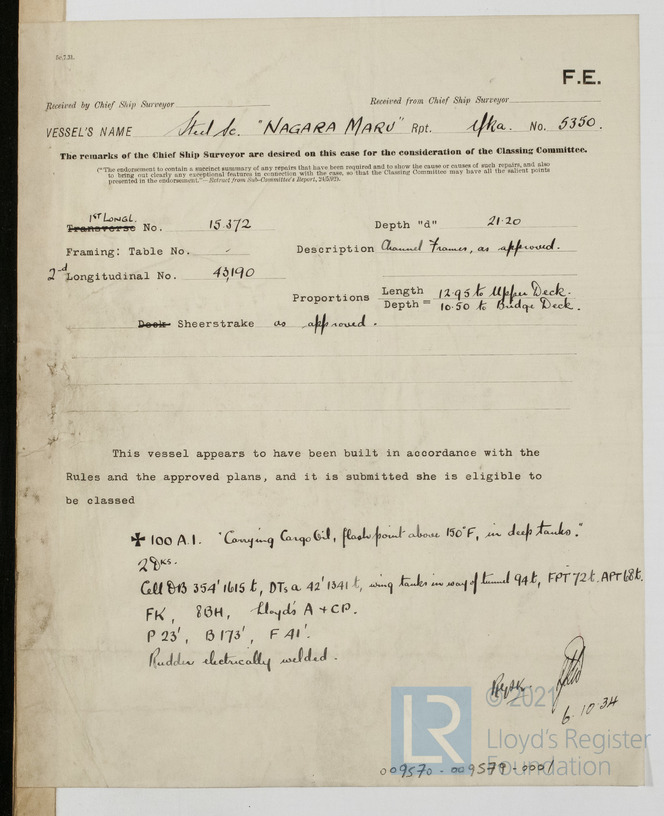 F.E.
Received by Chief Ship Surveyor Received from Chief Ship Surveyor
VESSEL'S NAME Steel Sc. "NAGARA MARU" Rpt. Yka. No. 5350.
The remarks of the Chief Ship Surveyor are desired on this case for the consideration of the Classing Committee.
("The endorsement to contain a succinct summary of any repairs that have been required and to show the cause or causes of such repairs, and also
to bring out clearly any exceptional features in connection with the case, so that the Classing Committee may have all the salient points
presented in the endorsement."—Extract from Sub-Committee's Report, 24/5/92).
1ST LONGL.
Transverse No. 15372 Depth "d" 21.20
Framing: Table No. - Description Channel Frames, as approved.
2nd Longitudinal No. 43,190
Proportions Length / Depth = 12.95 to Upper Deck.
10.50 to Bridge Deck.
Deck Sheerstrake as approved.
This vessel appears to have been built in accordance with the
Rules and the approved plans, and it is submitted she is eligible to
be classed
✠ 100 A.1. "Carrying Cargo Oil, flash point above 150°F, in deep tanks."
2 Dks.
Cell DB 354' 1615 t, DTs a 42' 1341 t, wing tanks in way of tunnel 94 t, FPT 72 t. APT 68 t.
FK, 8BH, Lloyd's A & CP.
P 23', B 173', F 41'.
Rudder electrically welded.
6.10.34
© 2021
LR
Lloyd's Register
Foundation
009570-009579-0001